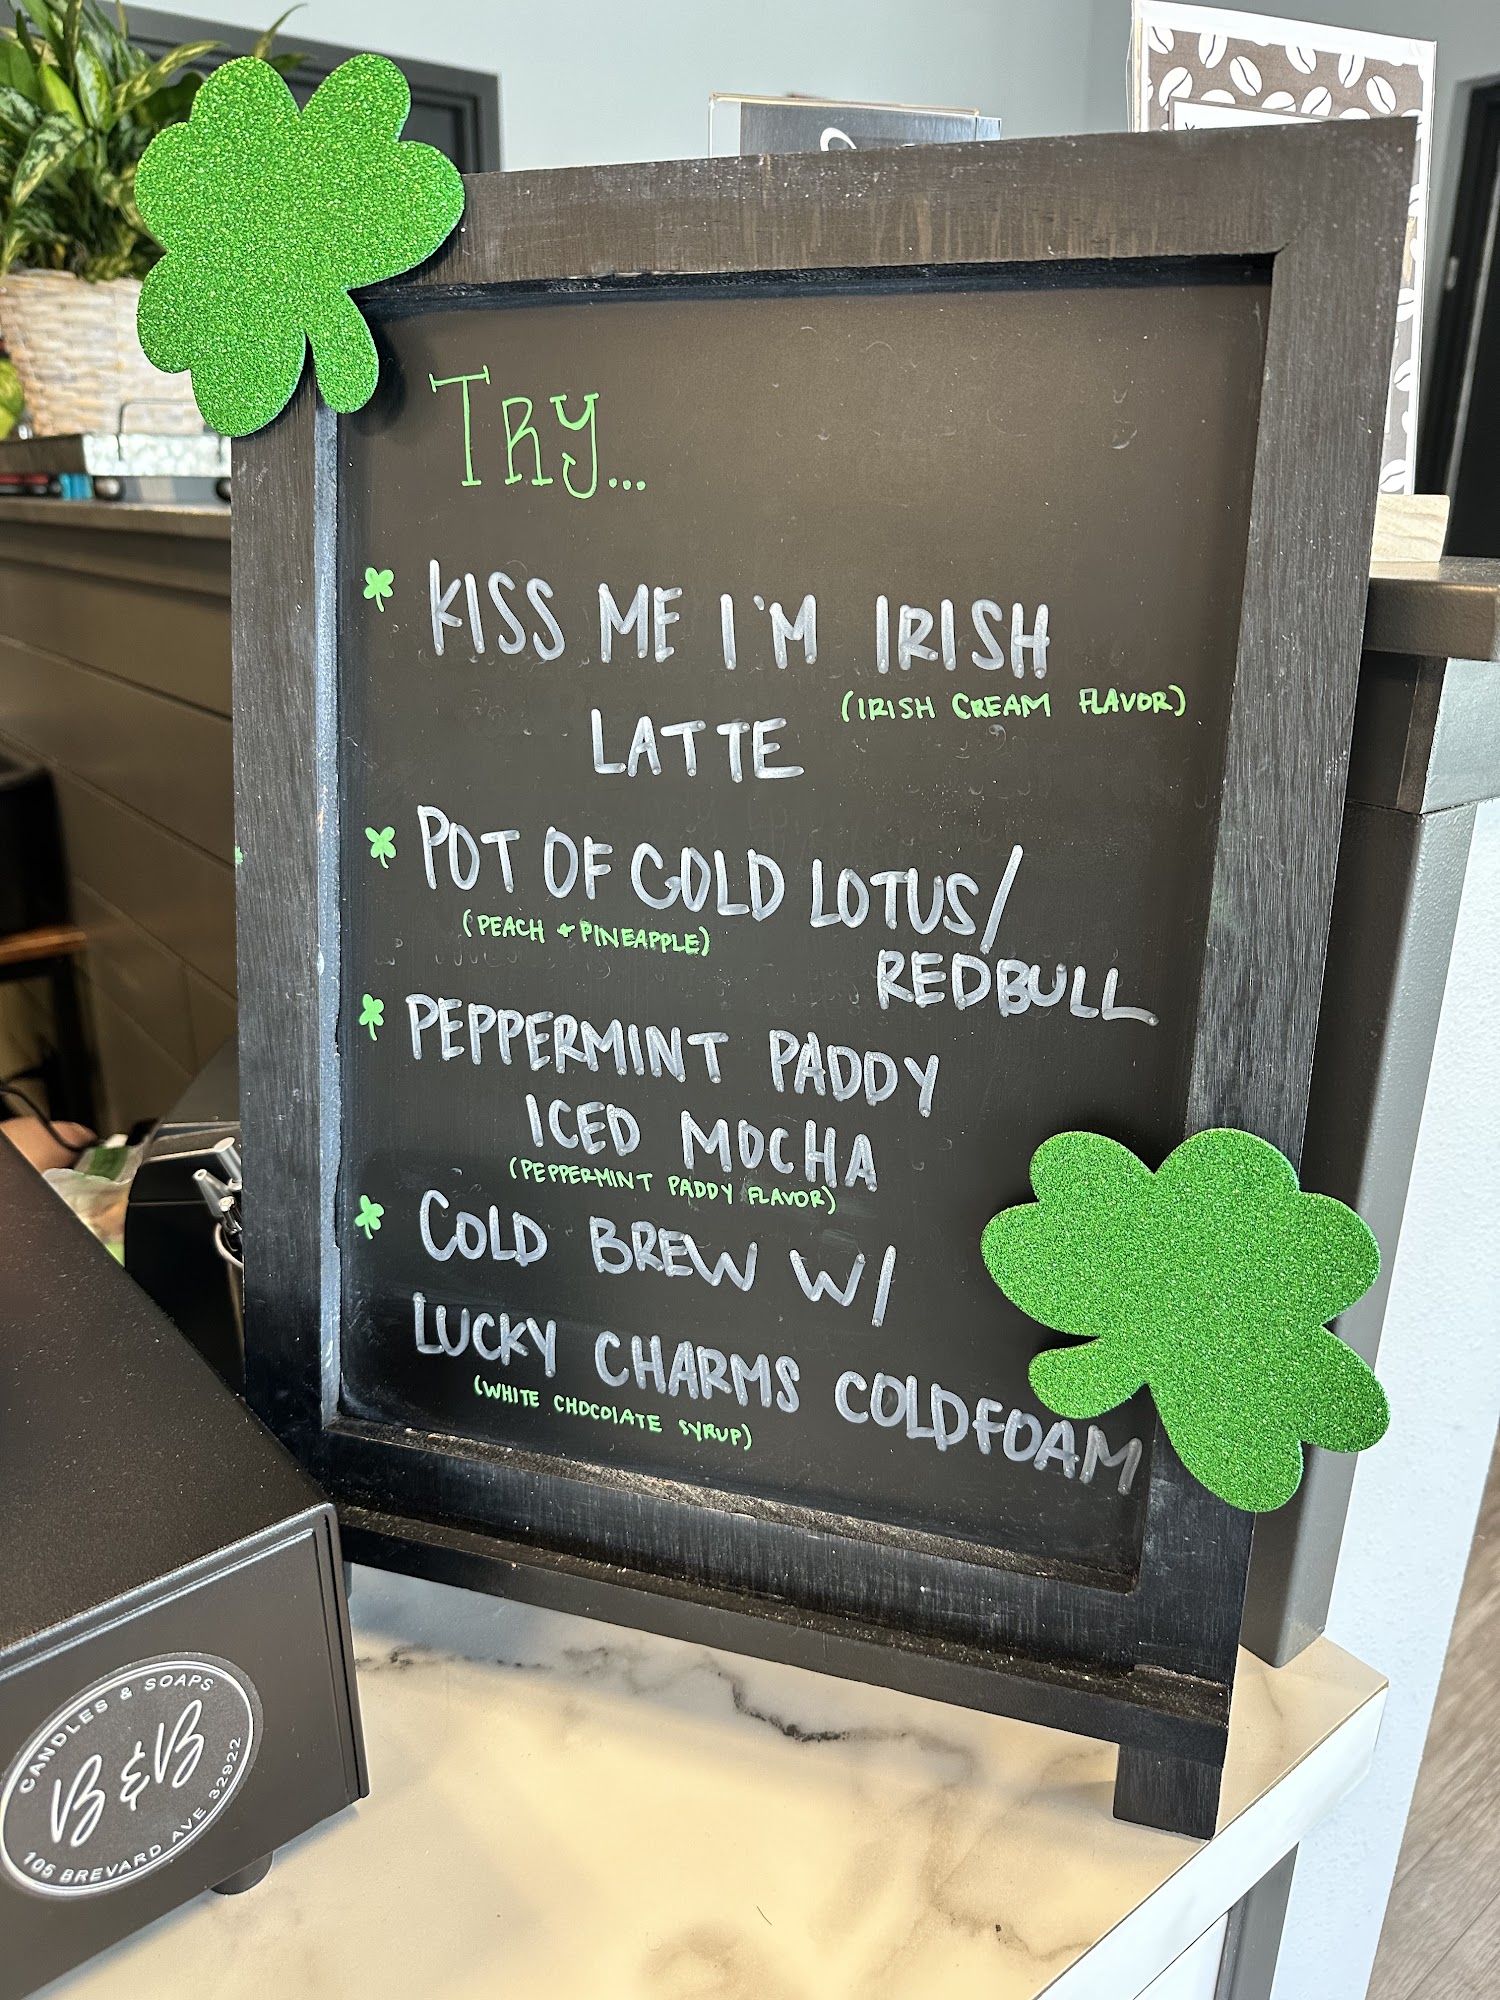 TRY...
KISS ME I'M IRISH
(IRISH CREAM FLAVOR)
LATTE
POT OF GOLD LOTUS/
(PEACH + PINEAPPLE)
REDBULL
PEPPERMINT PADDY
ICED MOCHA
(PEPPERMINT PADDY FLAVOR)
COLD BREW W/
LUCKY CHARMS COLDFOAM
(WHITE CHOCOLATE SYRUP)
CANDLES & SOAPS
B & B
105 BREVARD AVE 32922